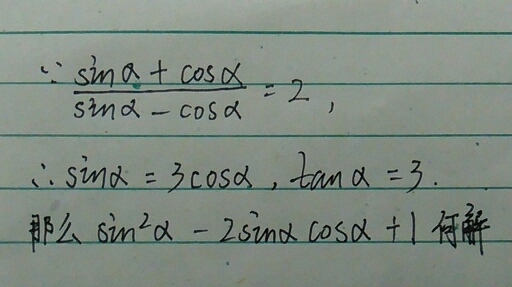 ∵ (sinα + cosα)/(sinα − cosα) = 2,
∴ sinα = 3cosα, tanα = 3.
那么 sin²α − 2sinα cosα + 1 何解